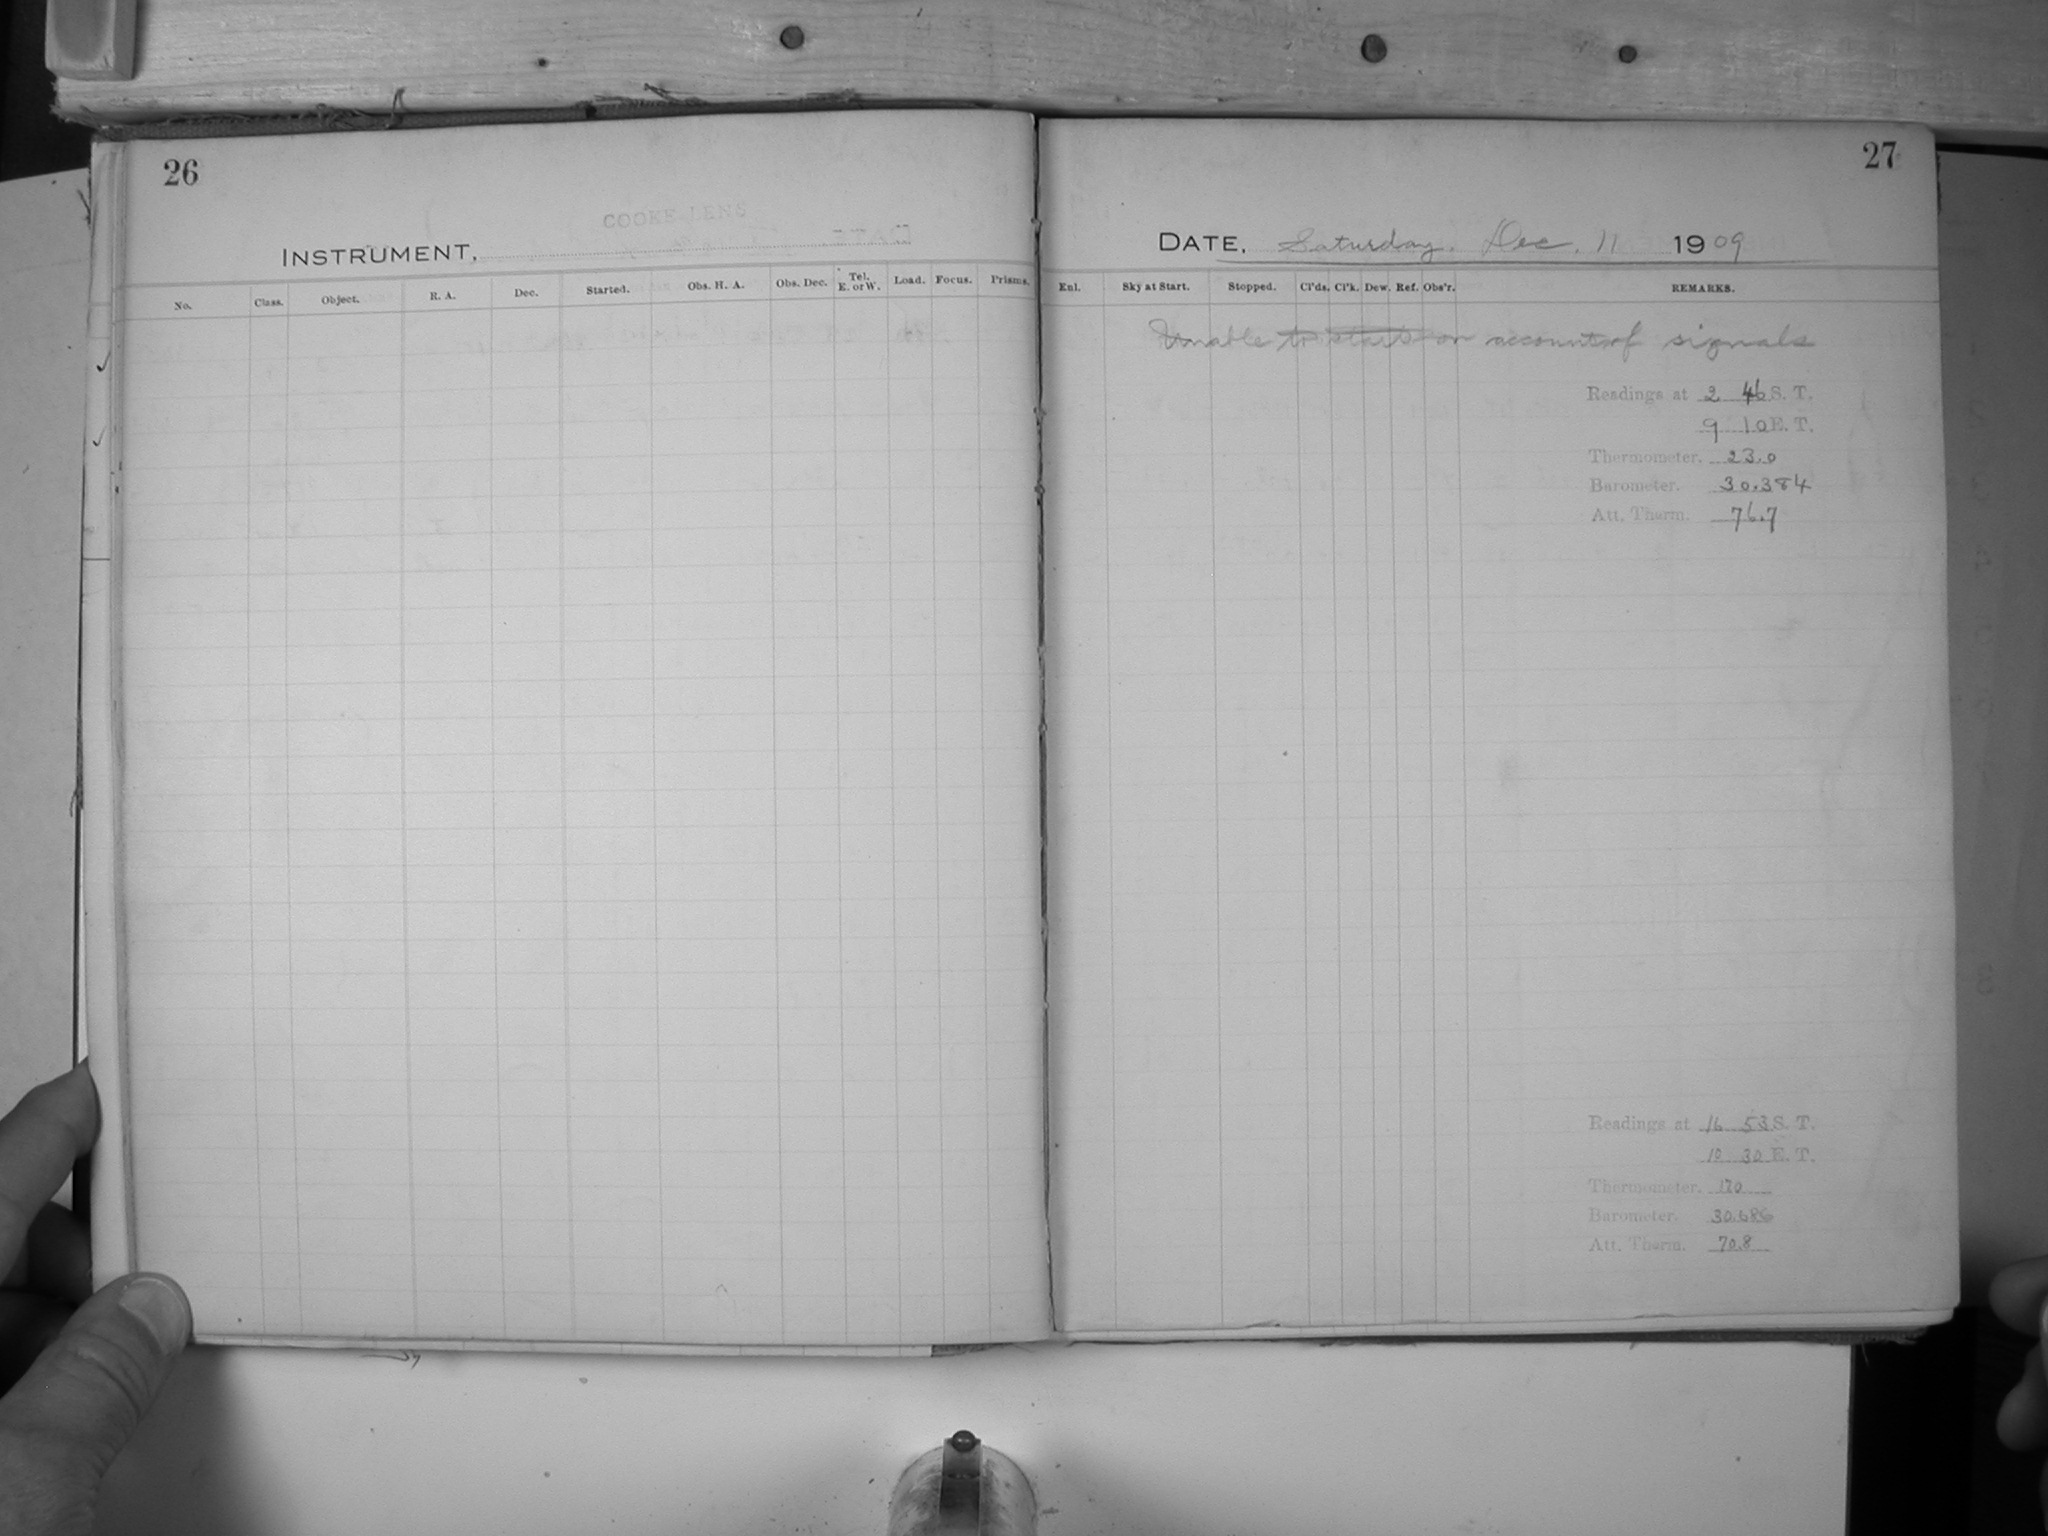 26
COOKE LENS
INSTRUMENT,
No. Class. Object. R. A. Dec. Started. Obs. H. A. Obs. Dec. Tel. E. or W. Load. Focus. Prisms.
27
DATE, Saturday, Dec. 11 1909
Enl. Sky at Start. Stopped. Cl'ds. Cl'k. Dew. Ref. Obs'r. REMARKS.
Unable to start on account of signals
Readings at 2 46 S. T.
9 10 E. T.
Thermometer. 23.0
Barometer. 30.384
Att. Therm. 76.7
Readings at 16 53 S. T.
10 30 E. T.
Thermometer.
Barometer. 30.686
Att. Therm. 70.8